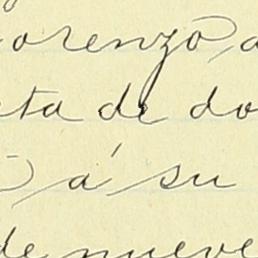 orenzo, a
ta de do
á su
de nueve